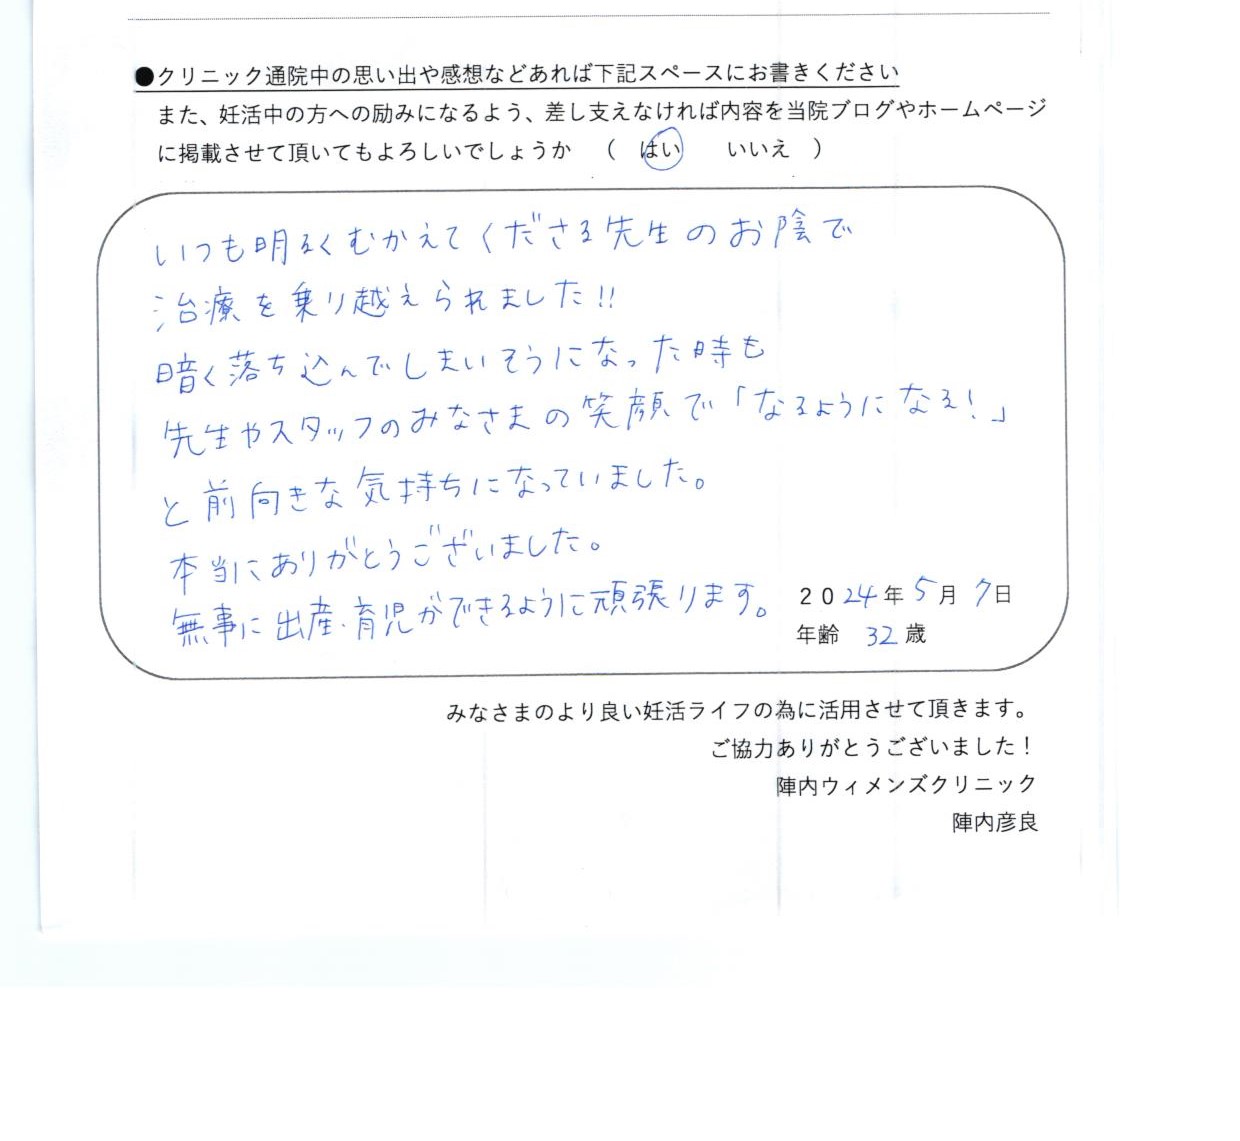 ●クリニック通院中の思い出や感想などあれば下記スペースにお書きください
また、妊活中の方への励みになるよう、差し支えなければ内容を当院ブログやホームページ
に掲載させて頂いてもよろしいでしょうか　（　はい　　いいえ　）
いつも明るくむかえてくださる先生のお陰で
治療を乗り越えられました!!
暗く落ち込んでしまいそうになった時も
先生やスタッフのみなさまの笑顔で「なるようになる！」
と前向きな気持ちになっていました。
本当にありがとうございました。
無事に出産・育児ができるように頑張ります。
2024年5月7日
年齢　32歳
みなさまのより良い妊活ライフの為に活用させて頂きます。
ご協力ありがとうございました！
陣内ウィメンズクリニック
陣内彦良